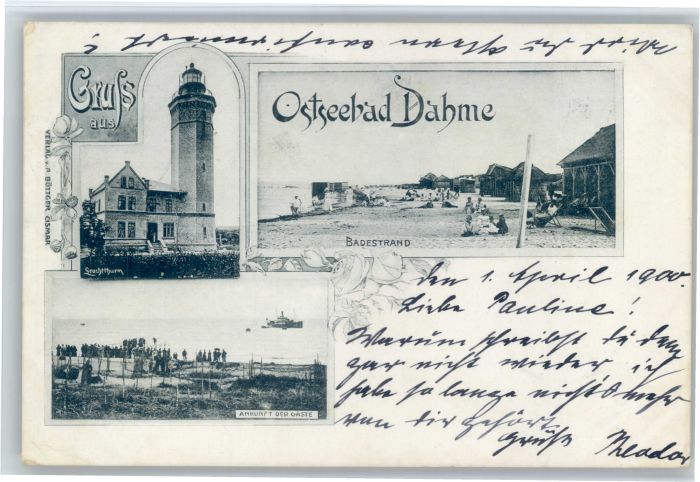 Gruß
aus
Ostseebad Dahme
VERLAG v. A. BÖTTGER, CISMAR
BADESTRAND
Leuchtthurm
den 1. April 1900.
Liebe Pauline!
Warum schreibst du denn
gar nicht wieder ich
habe so lange nichts mehr
von dir gehört.
Grüße Theodor
ANKUNFT DER GÄSTE